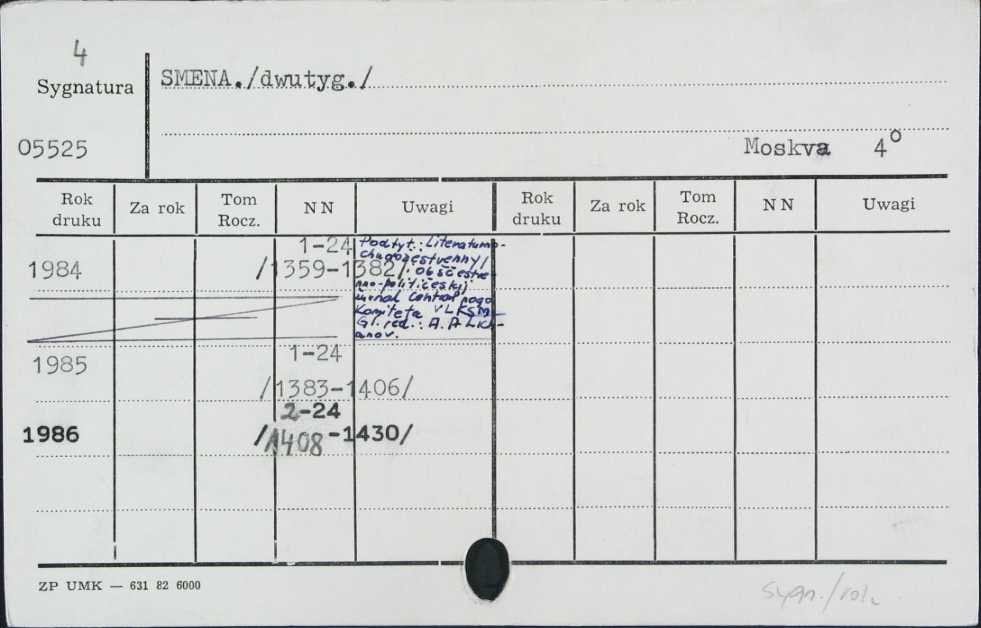 4
Sygnatura
SMENA./dwutyg./
05525
Moskva 4°
Rok druku Za rok Tom Rocz. NN Uwagi Rok druku Za rok Tom Rocz. NN Uwagi
1-24
1984 /1359-1382/
Podtyt.: Literaturno-
chudožestvennyj
obščestve
nno-političeskij
žurnal Central'nogo
Komiteta VLKSM.
Gl. red.: A. A Lich-
anov.
1-24
1985
/1383-1406/
2-24
1986 /1408-1430/
ZP UMK — 631 82 6000
sygn./rok